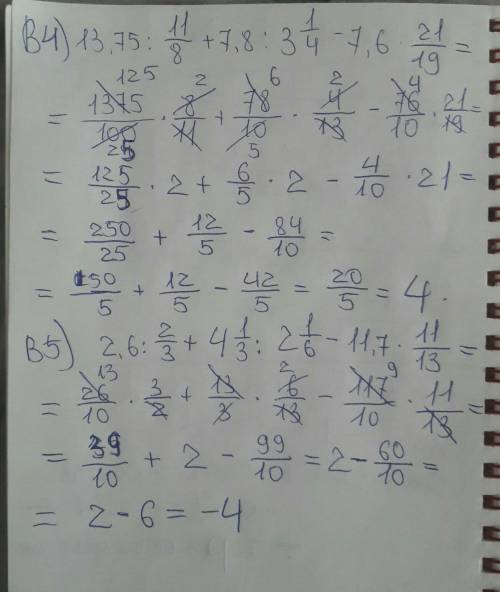 В4) 13,75 : 11/8 + 7,8 : 3 1/4 - 7,6 · 21/19 =
125 2 6 2 4
= 1375/100 · 8/11 + 78/10 · 4/13 - 76/10 · 21/19 =
25 5
= 125/25 · 2 + 6/5 · 2 - 4/10 · 21 =
= 250/25 + 12/5 - 84/10 =
= 50/5 + 12/5 - 42/5 = 20/5 = 4.
В5) 2,6 : 2/3 + 4 1/3 : 2 1/6 - 11,7 · 11/13 =
13 2 9
= 26/10 · 3/2 + 13/3 · 6/13 - 117/10 · 11/13 =
= 39/10 + 2 - 99/10 = 2 - 60/10 =
= 2 - 6 = -4